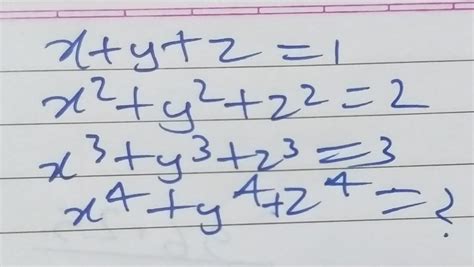 x+y+z=1
x²+y²+z²=2
x³+y³+z³=3
x⁴+y⁴+z⁴=?